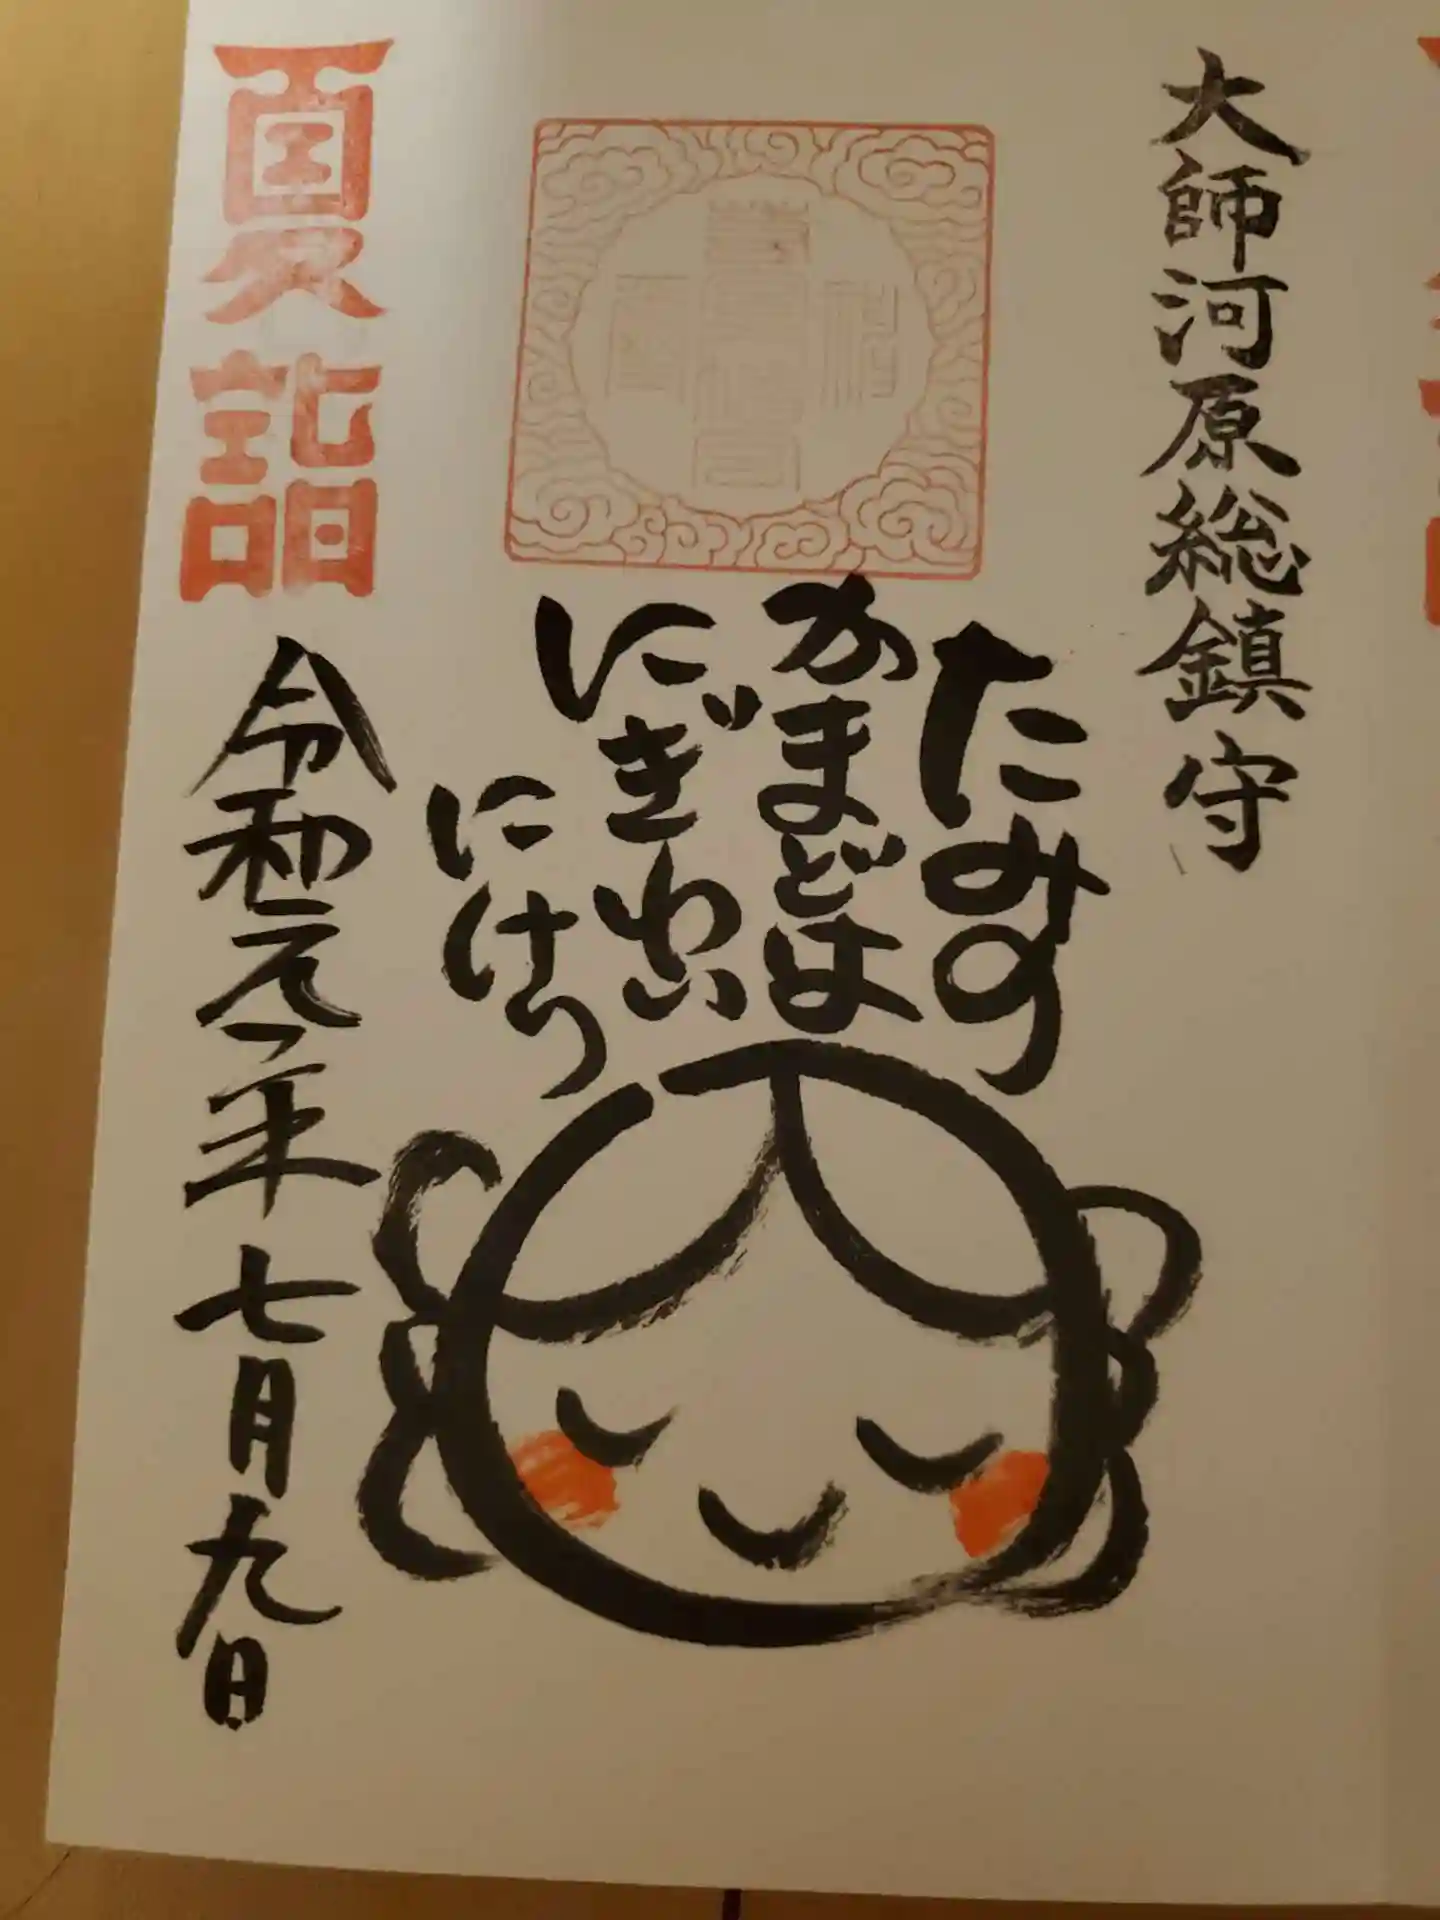 大師河原総鎮守
たみの
かまどは
にぎわい
にけり
夏詣
令和元年七月九日